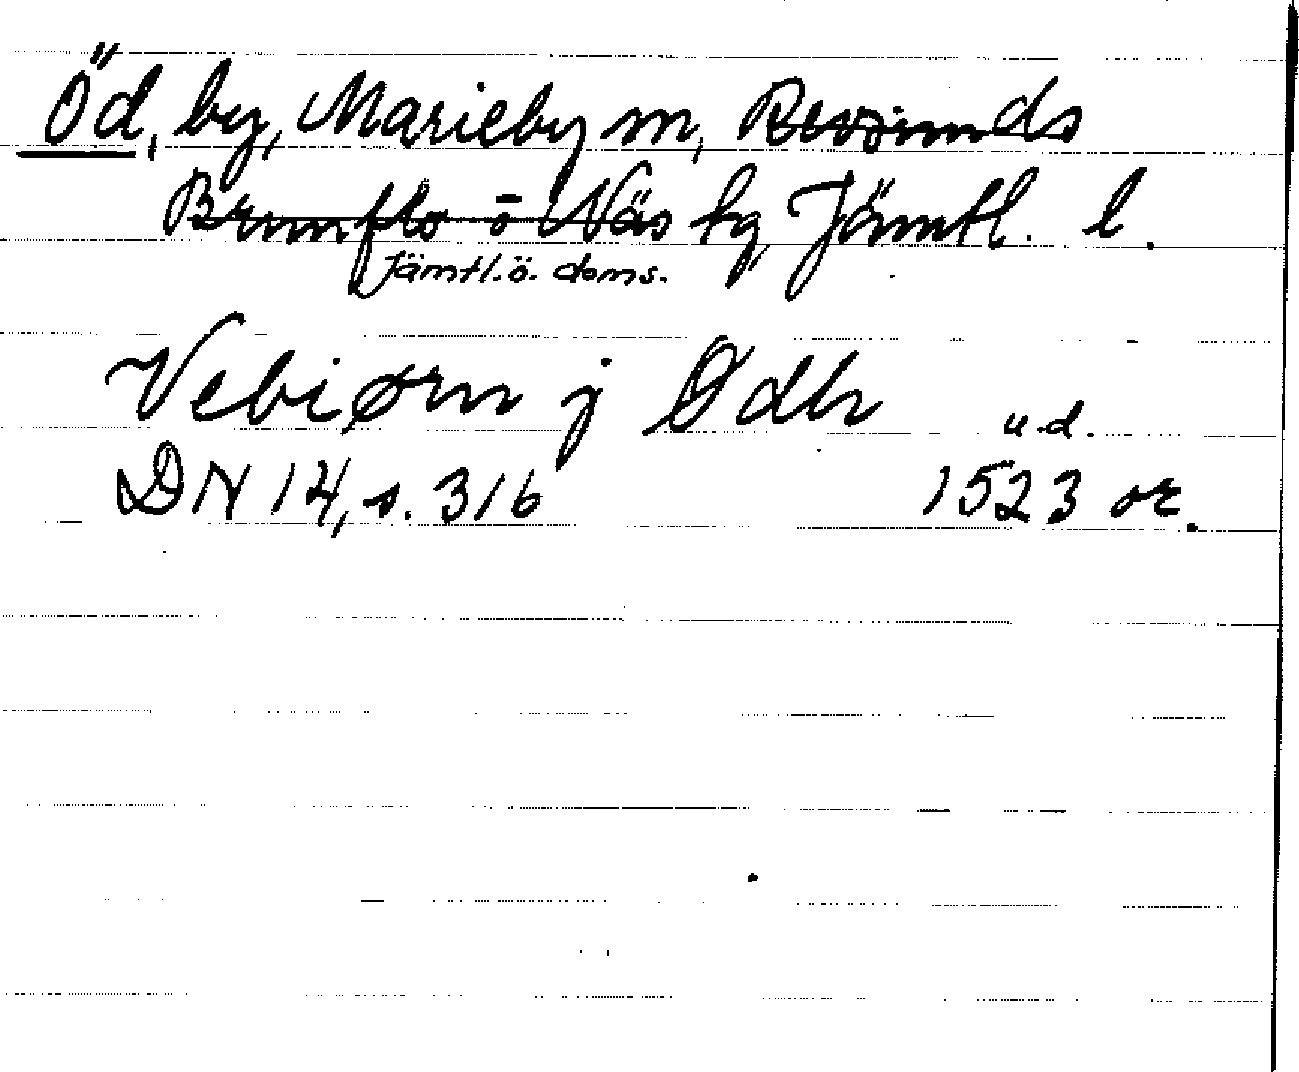 Öd, by, Marieby sn, Revsunds
Brunflo o Näs tg, Jämtl. l.
Jämtl. ö. doms.
Vebiørn j Ødh u.d.
DN 14, s. 316 1523 or.